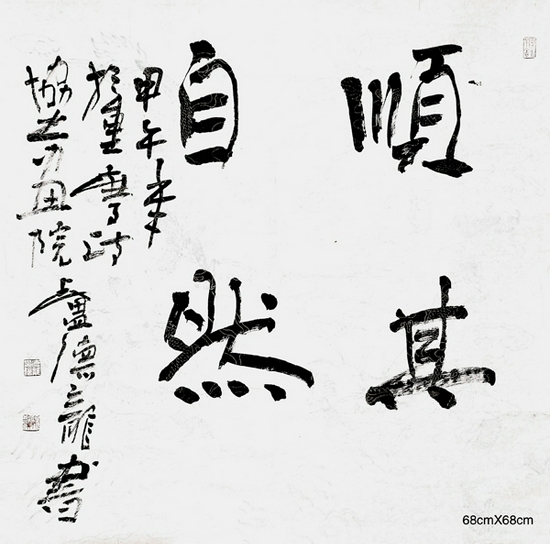 順其
自然
甲午年
於重慶詩
協画院盧德龍書
68cmX68cm